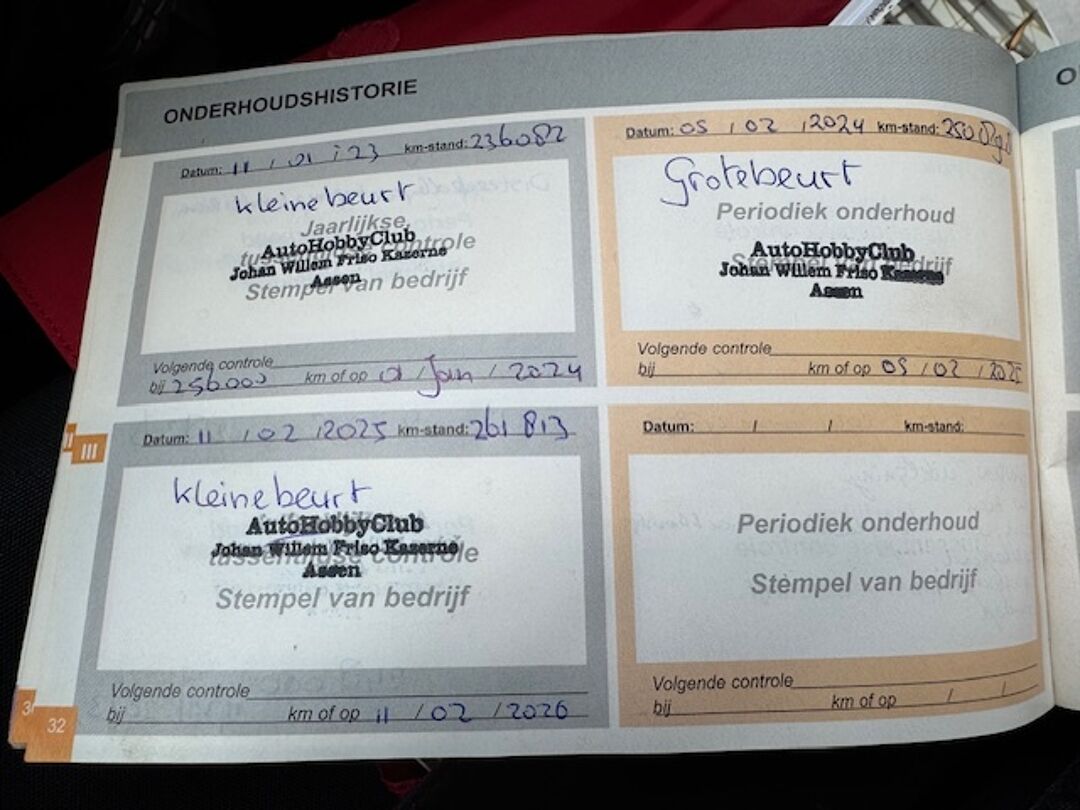 ONDERHOUDSHISTORIE
O
Datum: 11 / 01 / 23 km-stand: 236082
kleine beurt
Jaarlijkse,
tussentijdse controle
AutoHobbyClub
Johan Willem Friso Kazerne
Assen
Stempel van bedrijf
Volgende controle
bij 256000 km of op 01 / Jan / 2024
Datum: 05 / 02 / 2024 km-stand:
Grote beurt
Periodiek onderhoud
AutoHobbyClub
Stempel van bedrijf
Johan Willem Friso Kazerne
Assen
Volgende controle
bij km of op 05 / 02 / 2025
III
Datum: 11 / 02 / 2025 km-stand: 261813
kleine beurt
AutoHobbyClub
Johan Willem Friso Kazerne
tussentijdse controle
Assen
Stempel van bedrijf
Volgende controle
bij km of op 11 / 02 / 2026
Datum: / / km-stand:
Periodiek onderhoud
Stempel van bedrijf
Volgende controle
bij km of op / /
32